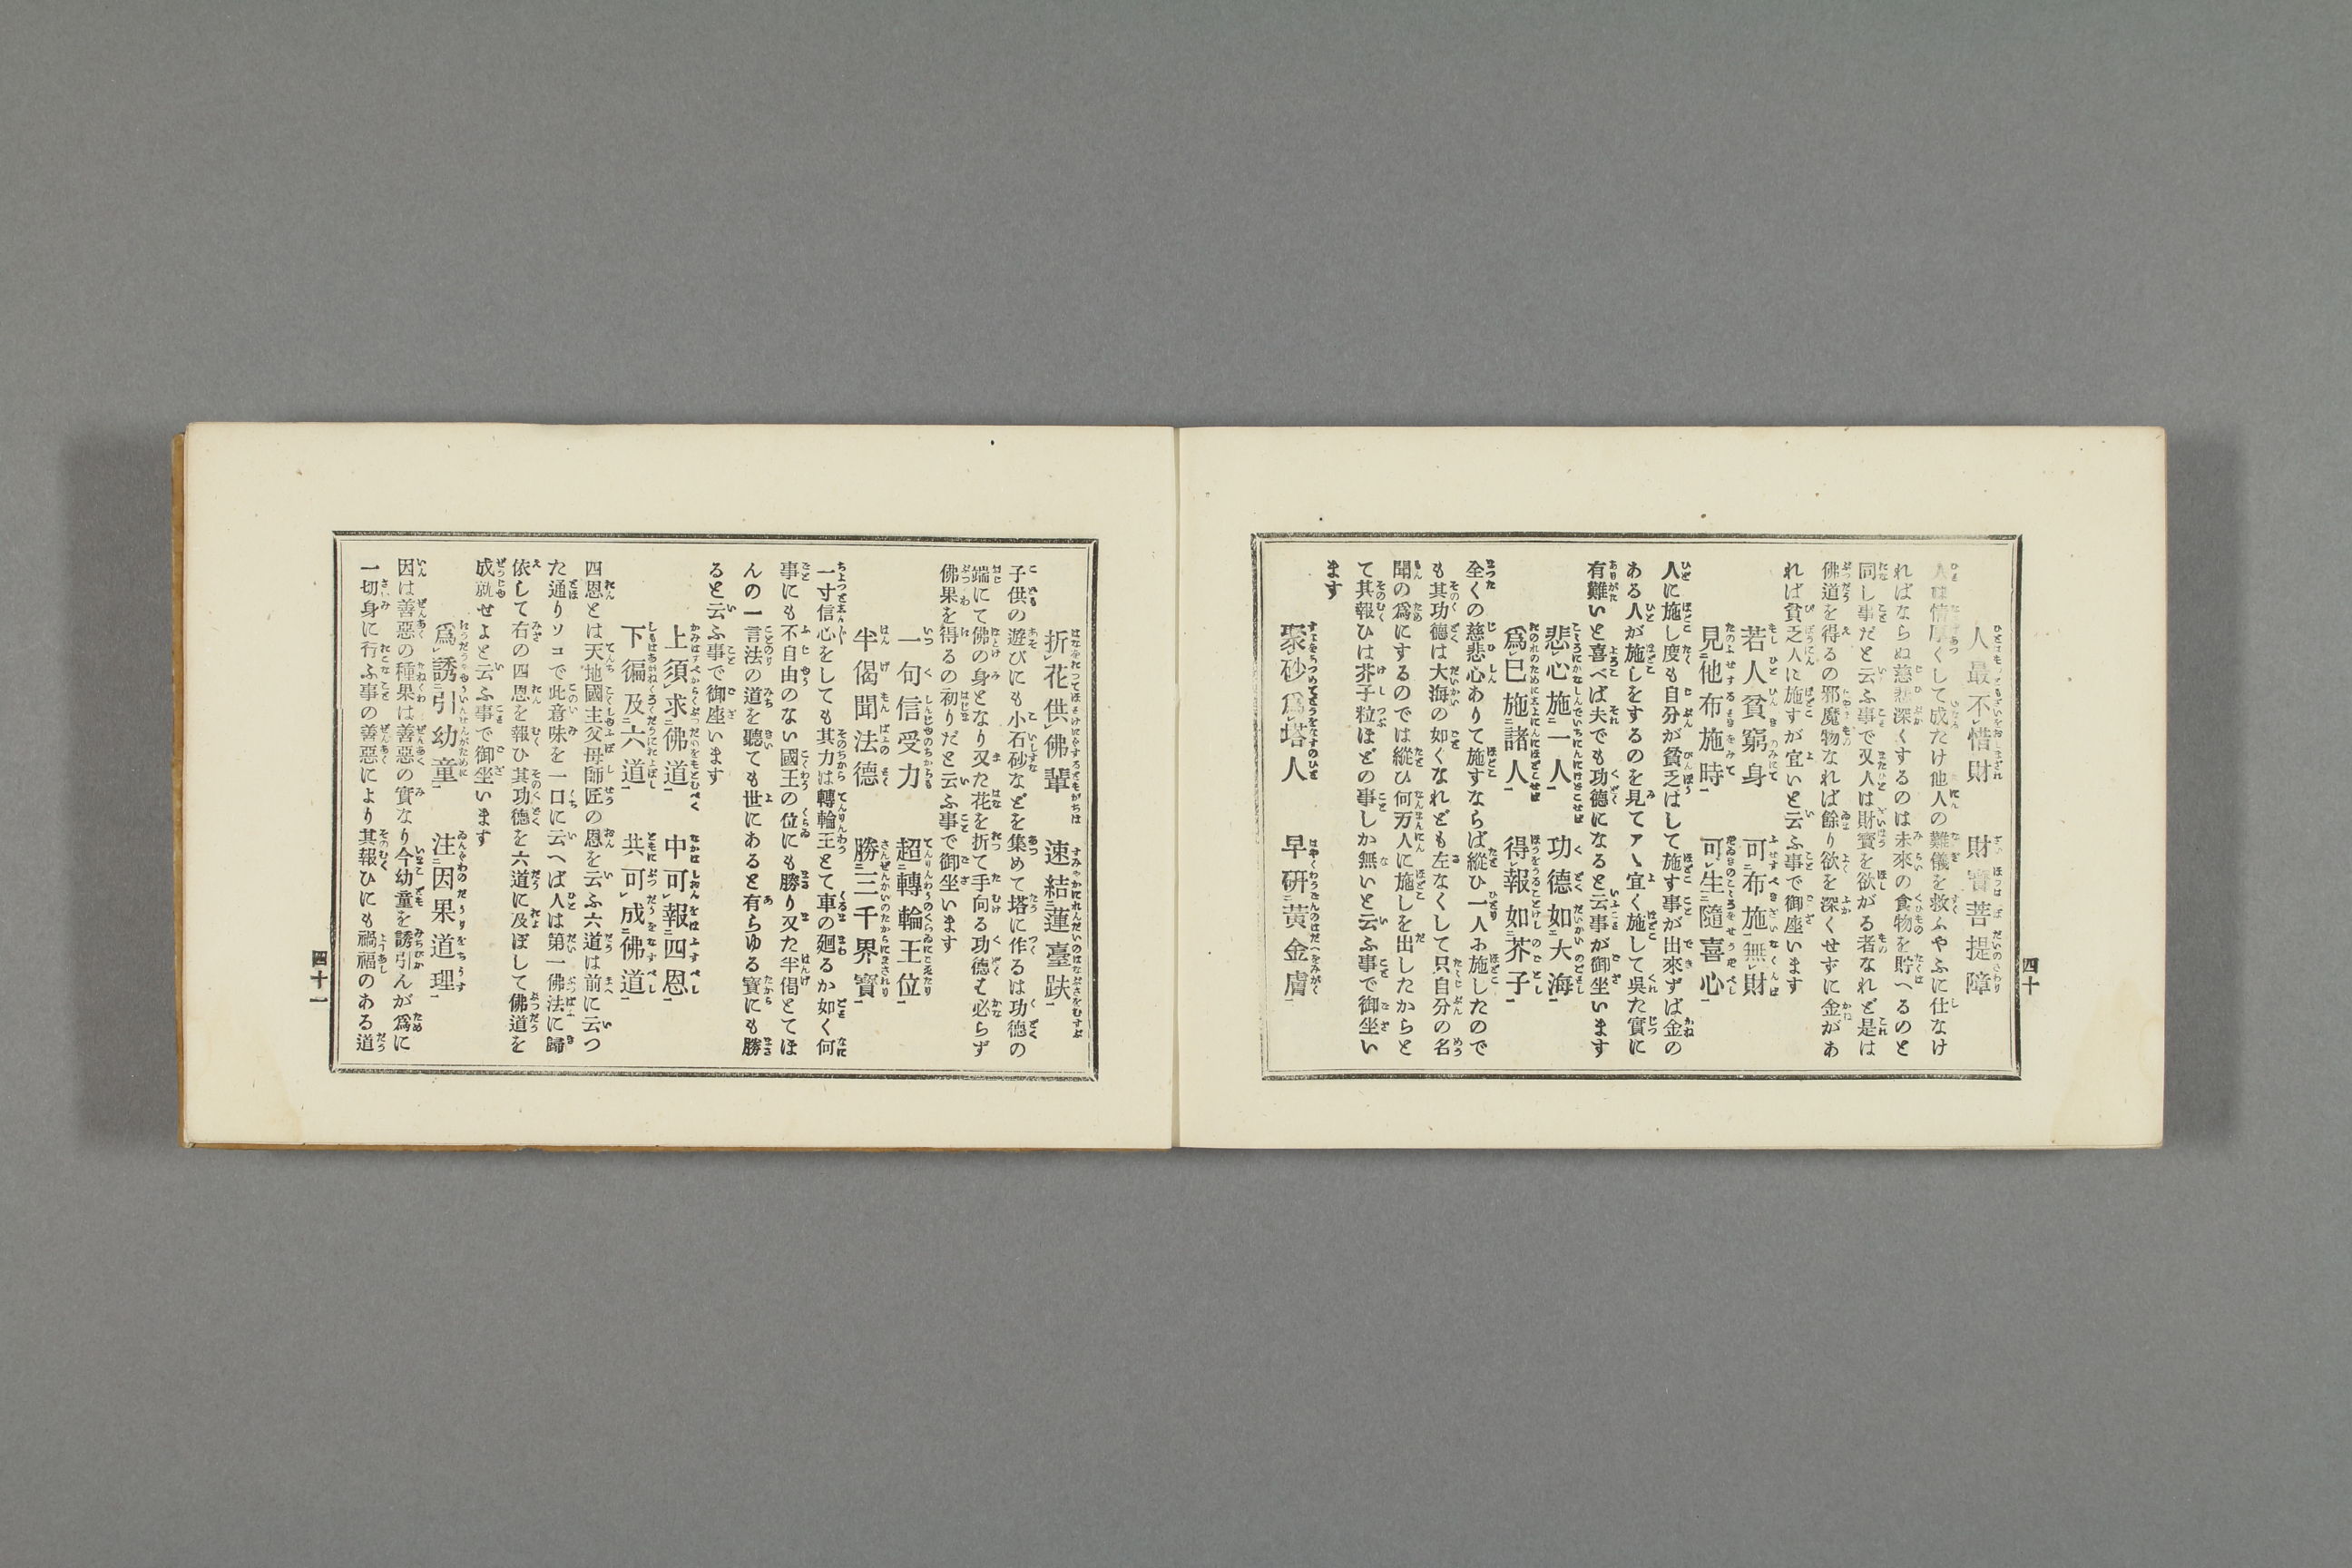 人最不惜財　財寳菩提障
人は情厚くして成たけ他人の難儀を救ふやふに仕なけ
ればならぬ慈悲深くするのは未來の食物を貯へるのと
同し事だと云ふ事で又人は財寳を欲がる者なれど是は
佛道を得るの邪魔物なれば餘り欲を深くせずに金があ
れば貧乏人に施すが宜いと云ふ事で御座います
若人貧窮身　可布施無財
見他布施時　可生隨喜心
人に施し度も自分が貧乏はして施す事が出來ずば金の
ある人が施しをするのを見てアヽ宜く施して吳た實に
有難いと喜べば夫でも功德になると云事が御坐います
悲心施一人　功德如大海
爲巳施諸人　得報如芥子
全くの慈悲心ありて施すならば縱ひ一人お施したので
も其功德は大海の如くなれども左なくして只自分の名
聞の爲にするのでは縱ひ何万人に施しを出したからと
て其報ひは芥子粒ほどの事しか無いと云ふ事で御坐い
ます
聚砂爲塔人　早研黃金膚
四十
折花供佛輩　速結蓮臺趺
子供の遊びにも小石砂などを集めて塔に作るは功德の
端にて佛の身となり又た花を折て手向る功德も必らず
佛果を得るの初りだと云ふ事で御坐います
一句信受力　超轉輪王位
半偈聞法德　勝三千界寳
一寸信心をしても其力は轉輪王とて車の廻るか如く何
事にも不自由のない國王の位にも勝り又た半偈とてほ
んの一言法の道を聽ても世にあると有らゆる寳にも勝
ると云ふ事で御座います
上須求佛道　中可報四恩
下徧及六道　共可成佛道
四恩とは天地國主父母師匠の恩を云ふ六道は前に云つ
た通りソコで此意味を一口に云へば人は第一佛法に歸
依して右の四恩を報ひ其功德を六道に及ぼして佛道を
成就せよと云ふ事で御坐います
爲誘引幼童　注因果道理
因は善惡の種果は善惡の實なり今幼童を誘引んが爲に
一切身に行ふ事の善惡により其報ひにも禍福のある道
四十一